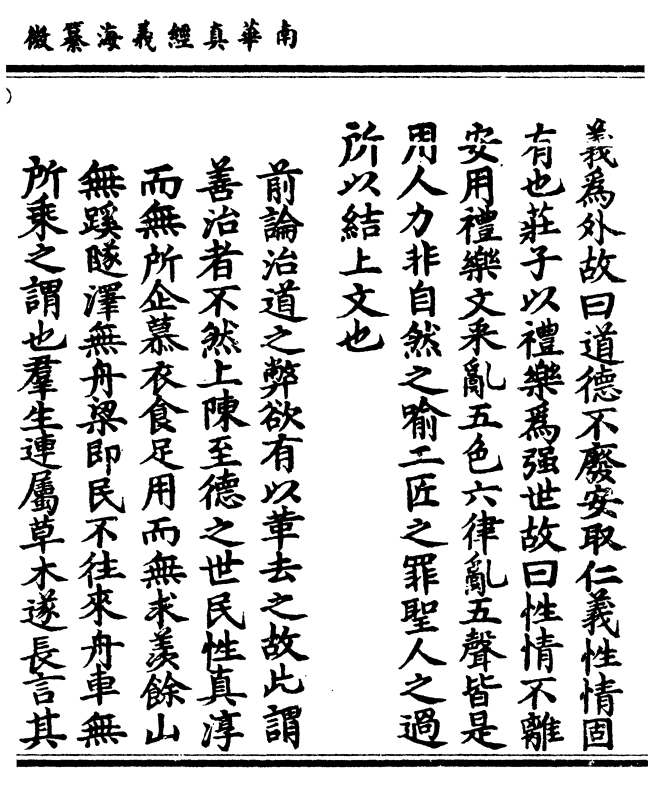 南華真經義海纂微
義爲外故曰道德不廢安取仁義性情固
有也莊子以禮樂爲强世故曰性情不離
安用禮樂文采亂五色六律亂五聲皆是
用人力非自然之喻工匠之罪聖人之過
所以結上文也
前論治道之弊欲有以革去之故此謂
善治者不然上陳至德之世民性真淳
而無所企慕衣食足用而無求羡餘山
無蹊隧澤無舟梁即民不往來舟車無
所乘之謂也羣生連屬草木遂長言其